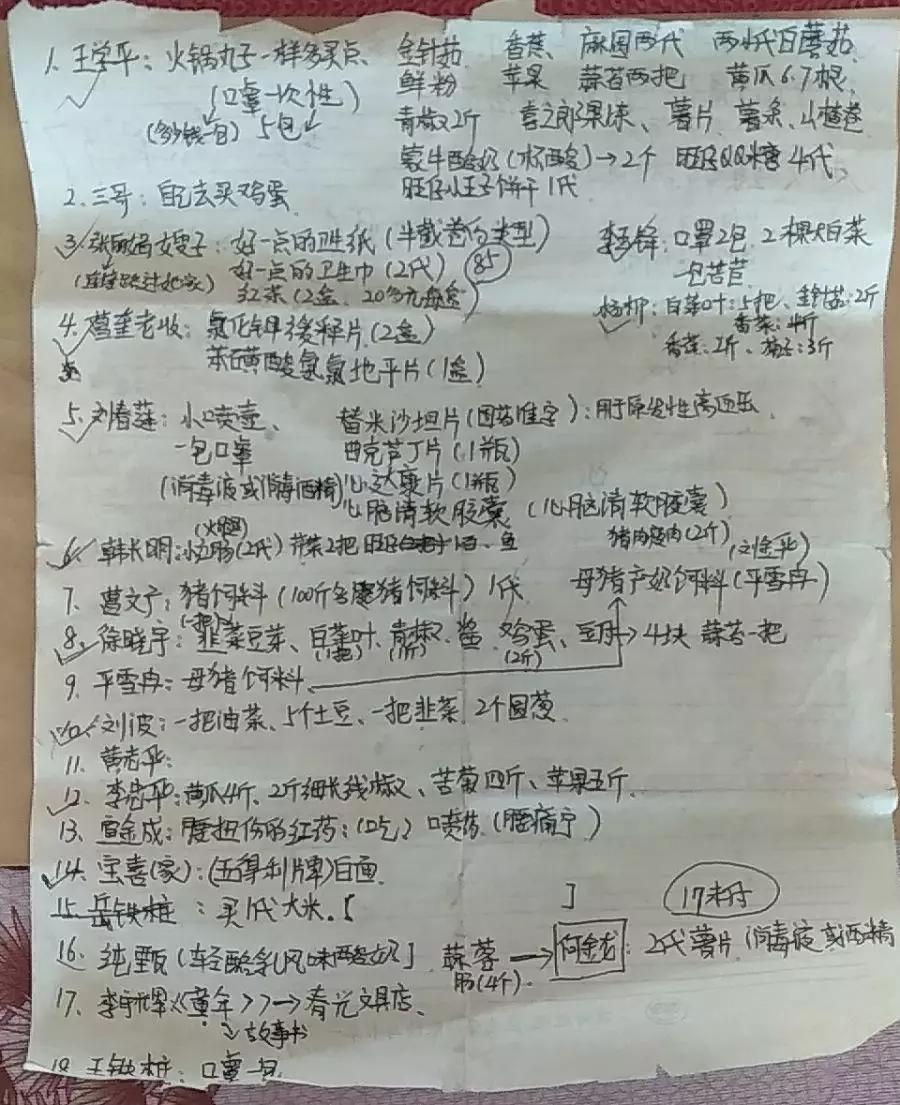 1. 王学平: 火锅丸子一样多买点、 金针菇 香蕉、麻园两代 两小代白蘑菇
(口罩一次性) 鲜粉 苹果 蒜苔两把 黄瓜6.7根
(多少钱一包) 5包 青椒2斤 喜之郎果冻、薯片、薯条、山楂卷
蒙牛酸奶(杯酸)→2个 旺仔QQ糖4代、
旺仔小王子饼干1代
2. 三哥: 自己去买鸡蛋
3. 嫂子: 好一点的卫生纸(半截卷的类型)
好一点的卫生巾(2代) 85
红茶(2盒、20多元每盒)
李锋: 口罩2包、2棵大白菜
一包苦苣
杨柳: 白菜叶:5把、金针菇:2斤
香菜:4斤
2斤、茄子:3斤
4. 老收: 氯化钾缓释片(2盒)
苯磺酸氨氯地平片(1盒)
5. 刘春莲: 小喷壶、 替米沙坦片(国药准字):用于原发性高血压、
一包口罩 曲克芦丁片(1瓶)
(消毒液或消毒酒精) 心达康片(1瓶)
心脑清软胶囊 (心脑清软胶囊)
(火腿)
6. 韩长明: (2代) 2把 鱼 猪肉瘦肉(2斤)
(刘金平)
7. 曹文广: 猪饲料(100斤 猪饲料) 1代 母猪产奶饲料(平雪冉)
(一把)
8. 徐晓宇: 韭菜豆芽、白菜叶、青椒、酱、鸡蛋、豆腐→4块 蒜苔一把
(1把) (1斤) (2斤)
9. 平雪冉: 母猪饲料、
10. 刘波: 一把油菜、5个土豆、一把韭菜、2个圆葱、
11. 黄老平:
12. 李先平: 黄瓜4斤、2斤细长线椒、苦菊四斤、苹果五斤、
13. 金成: 腰扭伤的红药:(吃) 口喷药(腰痛宁)
14. 宝喜(家): (五得利牌)白面
15. 岳铁柱: 买1代大米。[ ] 17未付
16. 纯甄(轻酪乳风味酸奶] 蒜蓉 → 何金龙: 2代薯片 消毒液或酒精
肠(4个).
17. 李宇辉《童年>>→春光文具店、
→故事书
18. 王铁柱: 口罩一包